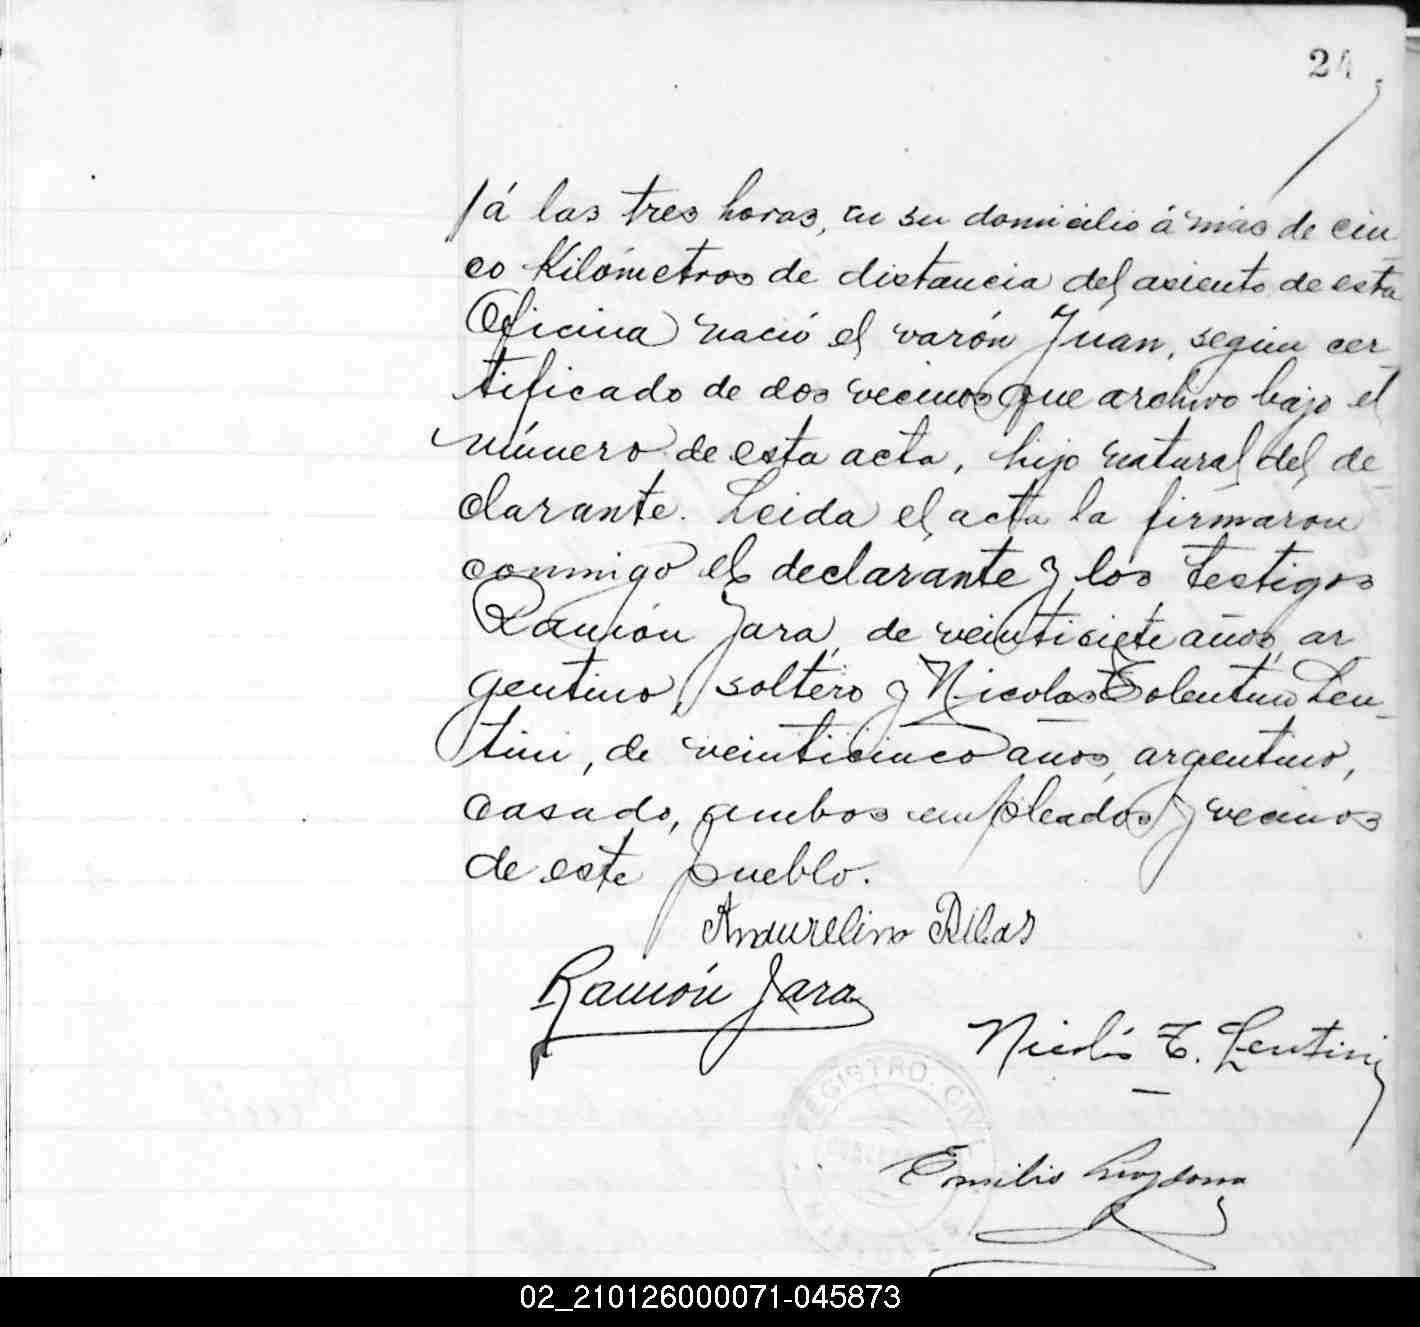 24
á las tres horas, en su domicilio á más de cin-
co Kilómetros de distancia del asiento de esta
Oficina nació el varón Juan, segun cer-
tificado de dos vecinos que archivo bajo el
número de esta acta, hijo natural del de-
clarante. Leida el acta la firmaron
conmigo el declarante y los testigos
Ramón Jara, de veintisiete años, ar-
gentino, soltero y Nicolas Tolentino Len-
tini, de veinticinco años, argentino,
casado, ambos empleados y vecinos
de este pueblo.
Ramón Jara
Nicolás T. Lentini
Emilio
REGISTRO CIVIL
02_210126000071-045873